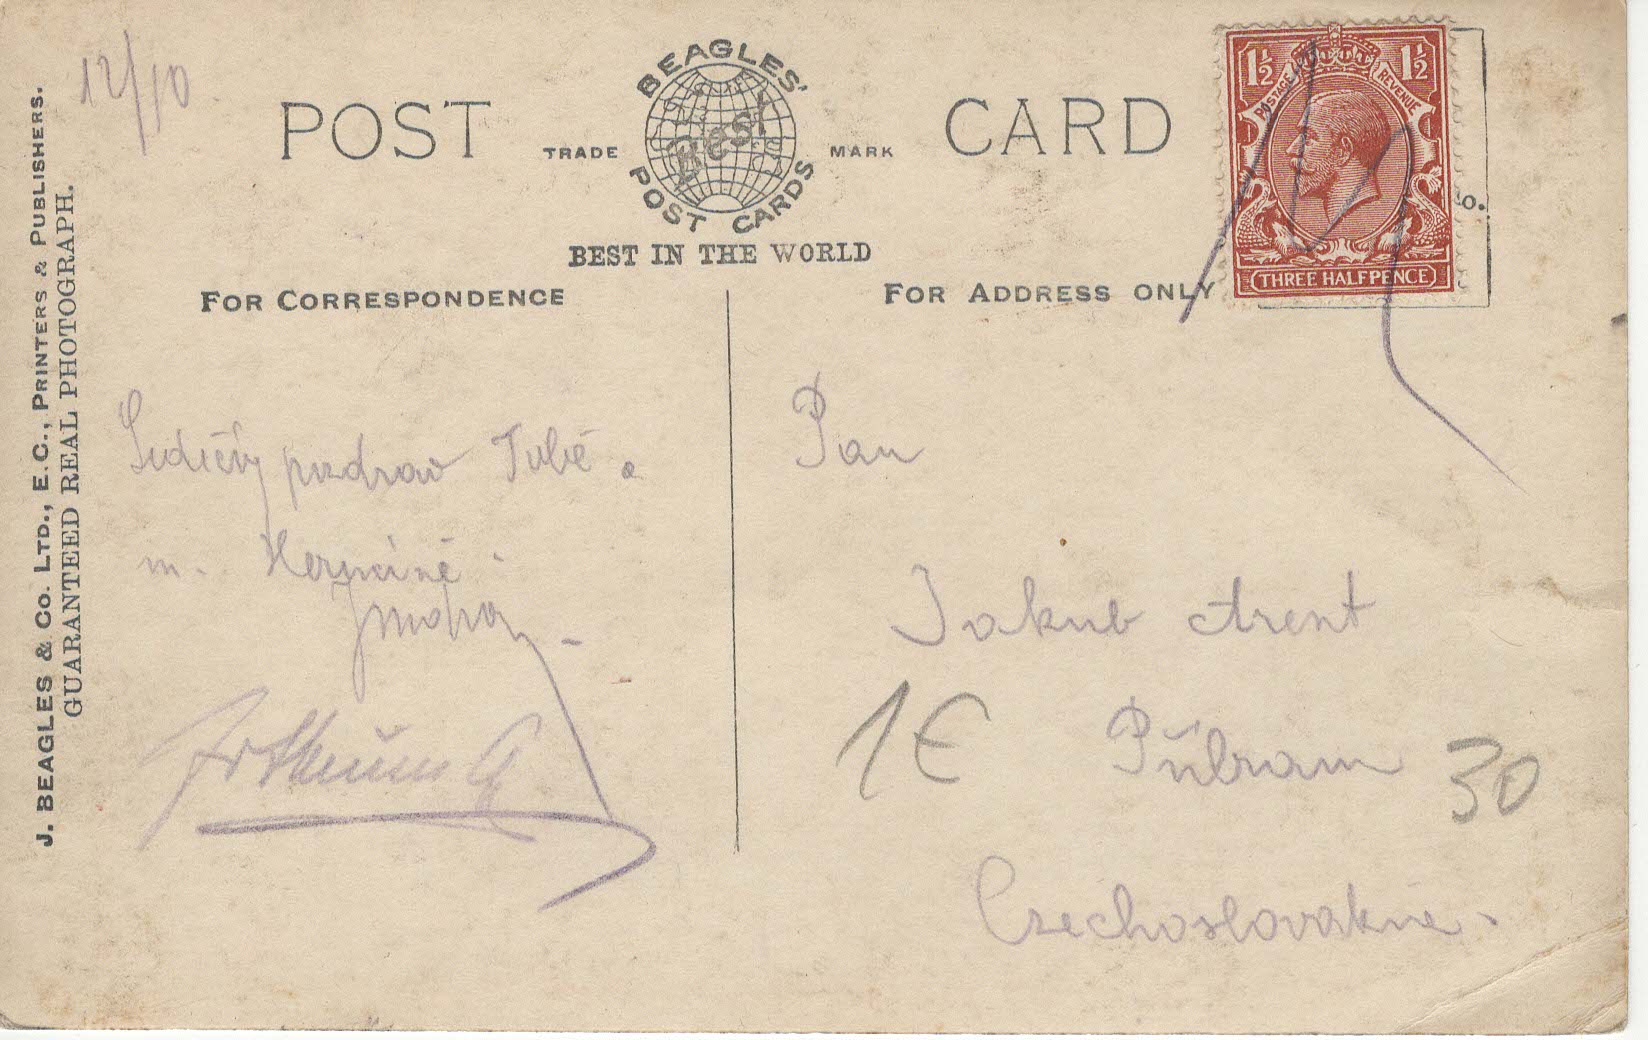 12/10
POST CARD
TRADE MARK
BEAGLES'
Best
POST CARDS
BEST IN THE WORLD
FOR CORRESPONDENCE
FOR ADDRESS ONLY
1½ 1½
POSTAGE REVENUE
THREE HALFPENCE
o.
J. BEAGLES & CO. LTD., E.C., PRINTERS & PUBLISHERS.
GUARANTEED REAL PHOTOGRAPH.
Srdečný pozdrav Tobě a
m. Hermíně
Pan
Jakub Arent
Příbram
Czechoslovakie.
1€
30